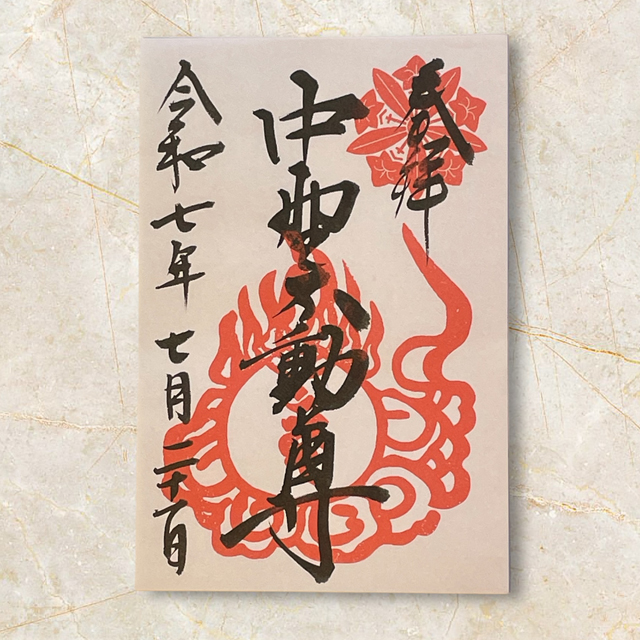 奉拝
中西不動尊
令和七年七月二十一日